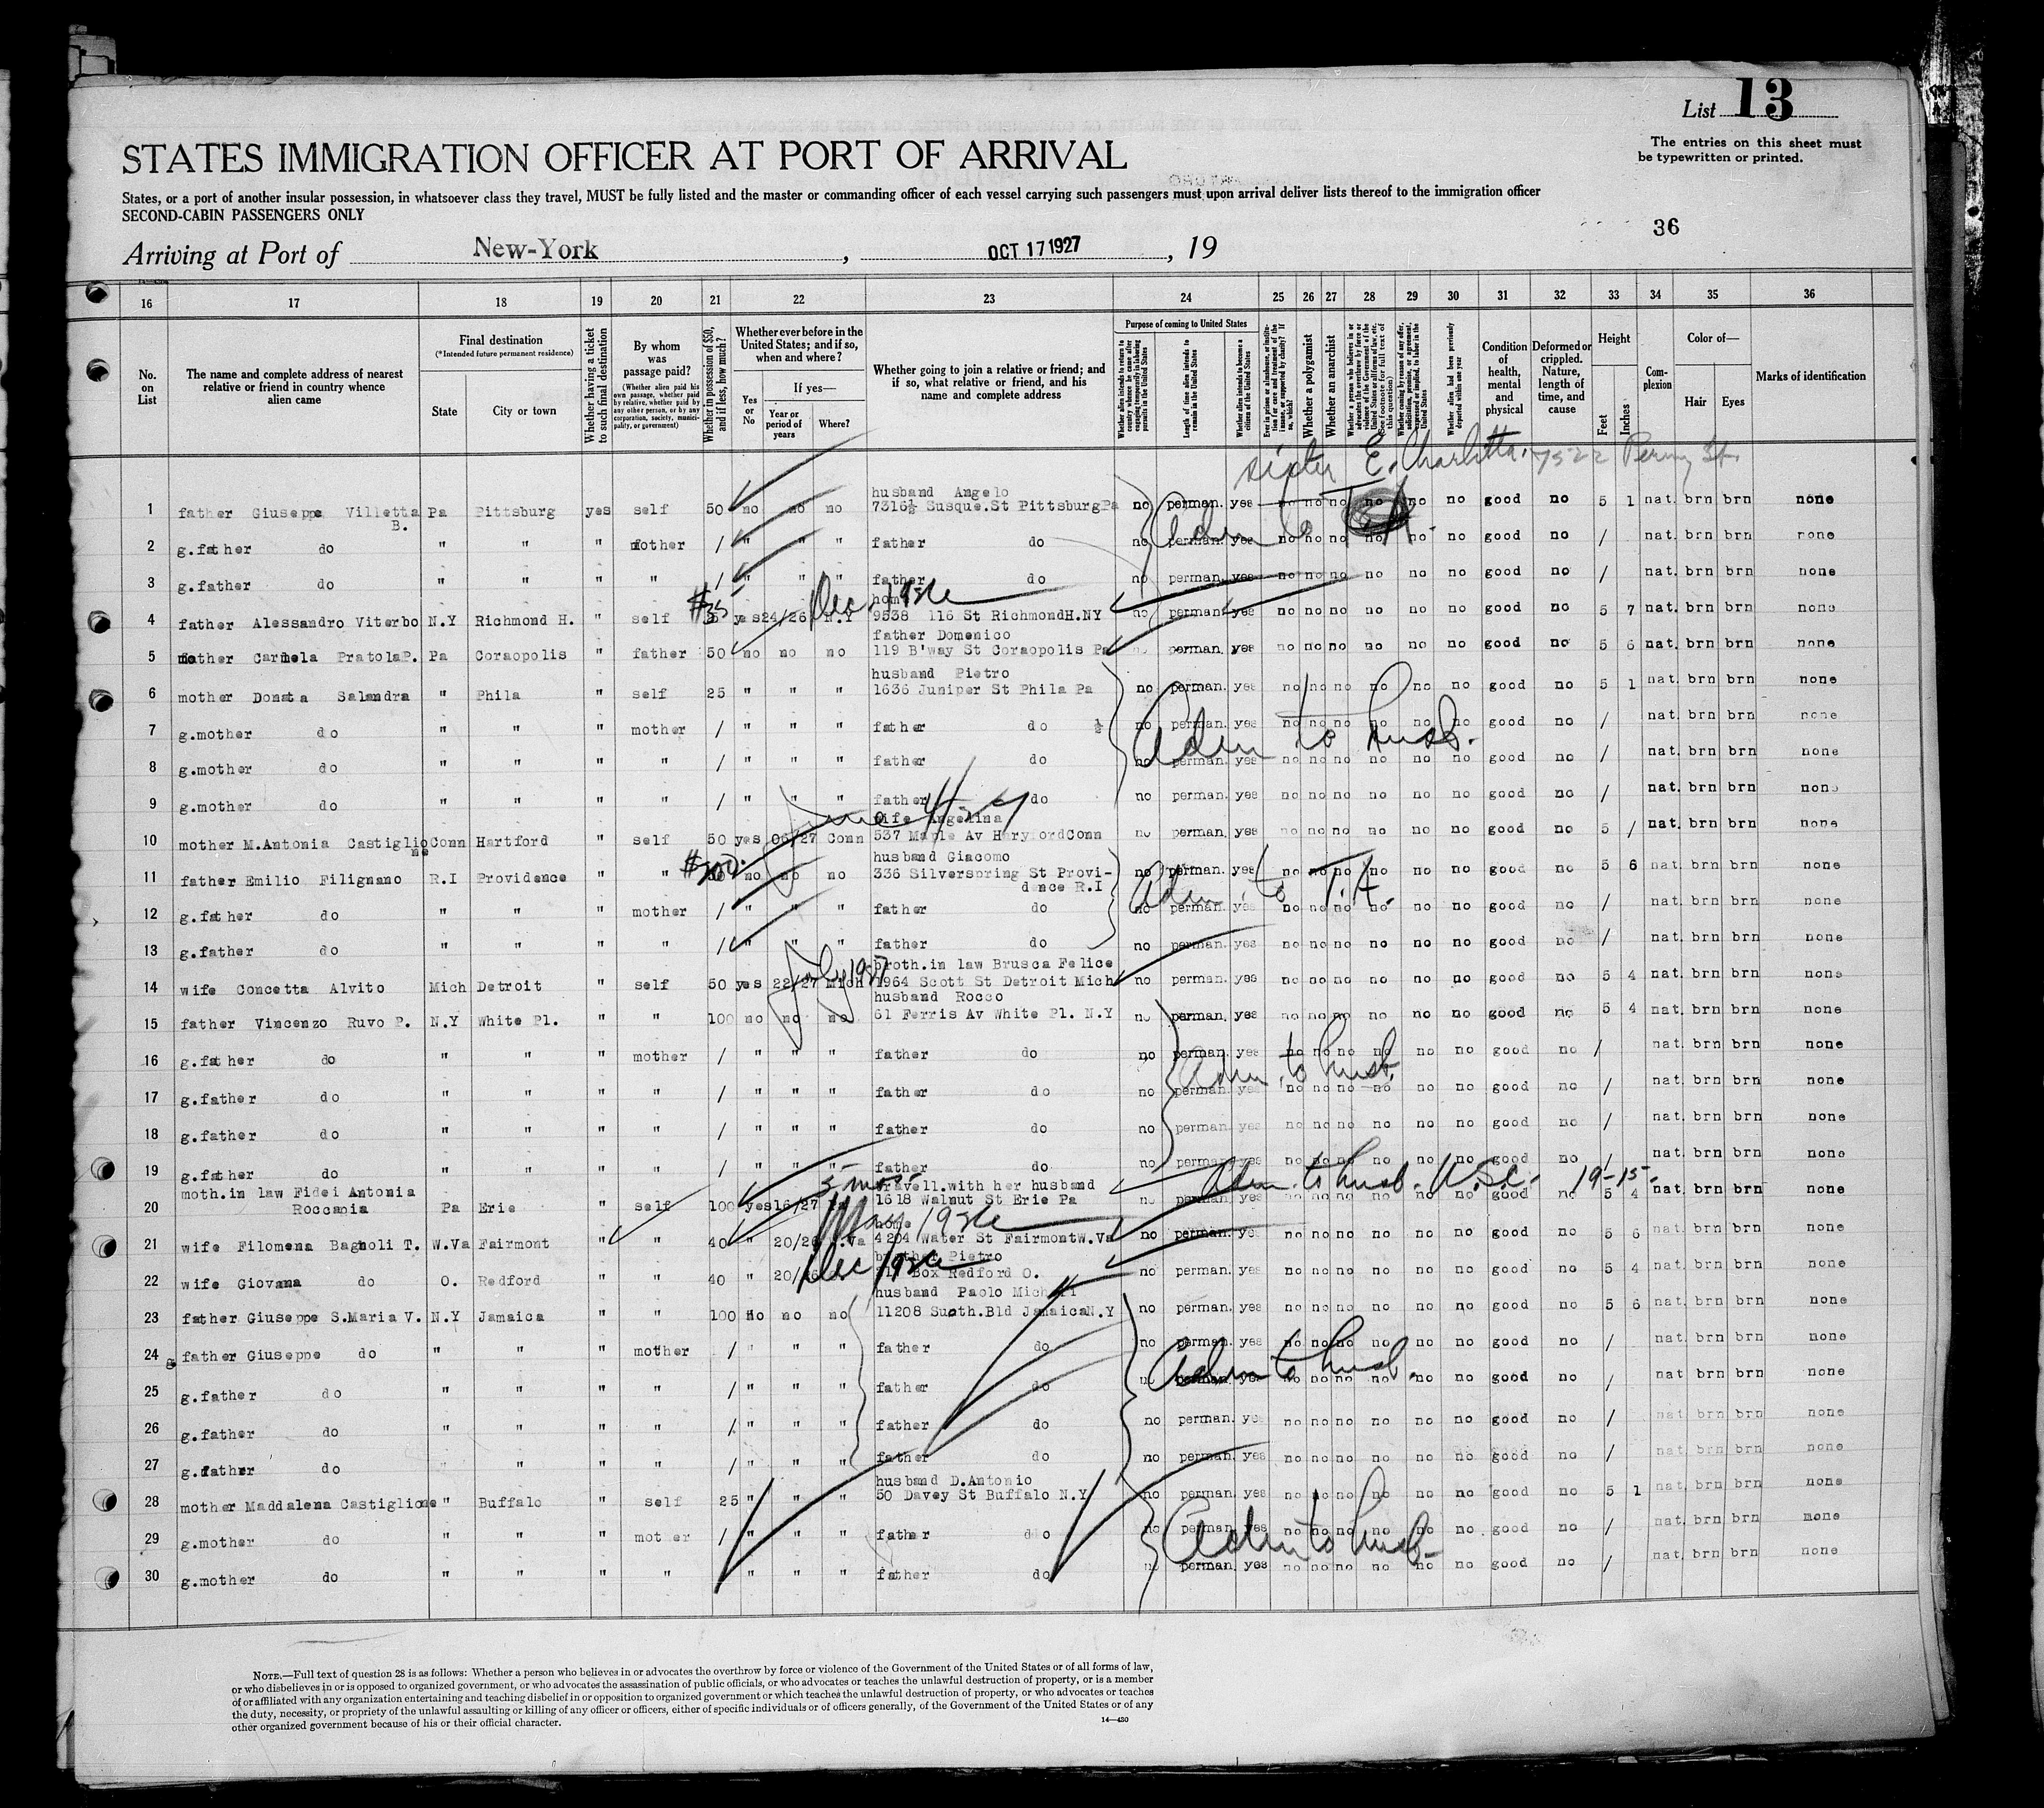 List 13
The entries on this sheet must
be typewritten or printed.
STATES IMMIGRATION OFFICER AT PORT OF ARRIVAL
States, or a port of another insular possession, in whatsoever class they travel, MUST be fully listed and the master or commanding officer of each vessel carrying such passengers must upon arrival deliver lists thereof to the immigration officer
SECOND-CABIN PASSENGERS ONLY
36
Arriving at Port of New-York, OCT 17 1927, 19
16 17 18 19 20 21 22 23 24 25 26 27 28 29 30 31 32 33 34 35 36
No. on List
The name and complete address of nearest relative or friend in country whence alien came
Final destination
(*Intended future permanent residence)
State
City or town
Whether having a ticket to such final destination
By whom was passage paid?
(Whether alien paid his own passage, whether paid by relative, whether paid by any other person, or by any corporation, society, municipality, or government)
Whether in possession of $50, and if less, how much?
Whether ever before in the United States; and if so, when and where?
Yes or No
If yes—
Year or period of years
Where?
Whether going to join a relative or friend; and if so, what relative or friend, and his name and complete address
Purpose of coming to United States
Whether alien intends to return to country whence he came after engaging temporarily in laboring pursuits in the United States
Length of time alien intends to remain in the United States
Whether alien intends to become a citizen of the United States
Whether a polygamist
Whether an anarchist
Whether alien had been previously deported within one year
Condition of health, mental and physical
Deformed or crippled. Nature, length of time, and cause
Height
Feet
Inches
Complexion
Color of—
Hair
Eyes
Marks of identification
sister E. Charlotta. 7522 Penny St.
husband Angelo
1 father Giuseppe Villetta B. Pa Pittsburg yes self 50 no no no 7316½ Susque.St Pittsburg Pa no perman. yes no no no no no no good no 5 1 nat. brn brn none
2 g.father do " " " mother / " " " father do no perman. yes no no no no no no good no / nat. brn brn none
Adm to
3 g.father do " " " " / " " " father do no perman. yes no no no no no no good no / nat. brn brn none
$35 Dec. 1926
home
4 father Alessandro Viterbo N.Y Richmond H. " self yes 24/26 N.Y 9538 116 St RichmondH.NY no perman. yes no no no no no no good no 5 7 nat. brn brn none
father Domenico
5 mother Carmela PratolaP. Pa Coraopolis " father 50 no no no 119 B'way St Coraopolis Pa no perman. yes no no no no no no good no 5 6 nat. brn brn none
husband Pietro
6 mother Donata Salandra " Phila " self 25 " " " 1636 Juniper St Phila Pa no perman. yes no no no no no no good no 5 1 nat. brn brn none
7 g.mother do " " " mother / " " " father do ½ no perman. yes no no no no no no good no / nat. brn brn none
Adm to husb.
8 g.mother do " " " " / " " " father do no perman. yes no no no no no no good no / nat. brn brn none
9 g.mother do " " " " / " " " father do no perman. yes no no no no no no good no / nat. brn brn none
wife Angelina
10 mother M.Antonia Castiglione Conn Hartford " self 50 yes 06/27 Conn 537 Maple Av HaryfordConn no perman. yes no no no no no no good no 5 / nat. brn brn none
husband Giacomo
11 father Emilio Filignano R.I Providence " " $200. no no no 336 Silverspring St Providence R.I no perman. yes no no no no no no good no 5 6 nat. brn brn none
Adm. to
12 g.father do " " " mother / " " " father do no perman. yes no no no no no no good no / nat. brn brn none
13 g.father do " " " " / " " " father do no perman. yes no no no no no no good no / nat. brn brn none
July 1927
broth.in law Brusca Felice
14 wife Concetta Alvito Mich Detroit " self 50 yes 22/27 Mich 1964 Scott St Detroit Mich no perman. yes no no no no no no good no 5 4 nat. brn brn none
husband Rocco
15 father Vincenzo Ruvo P. N.Y White Pl. " " 100 no no no 61 Ferris Av White Pl. N.Y no perman. yes no no no no no no good no 5 4 nat. brn brn none
16 g.father do " " " mother / " " " father do no perman. yes no no no no no no good no / nat. brn brn none
Adm. to husb.
17 g.father do " " " " / " " " father do no perman. yes no no no no no no good no / nat. brn brn none
18 g.father do " " " " / " " " father do no perman. yes no no no no no no good no / nat. brn brn none
19 g.father do " " " " / " " " father do no perman. yes no no no no no no good no / nat. brn brn none
Adm. to husb. 19-15-
moth.in law Fidei Antonia
travell.with her husband
20 Roccapia Pa Erie " self 100 yes 16/27 Pa 1618 Walnut St Erie Pa no perman. yes no no no no no no good no 5 4 nat. brn brn none
May 1926
home
21 wife Filomena Bagnoli T. W.Va Fairmont " " 40 " 20/26 W.Va 4204 Water St FairmontW.Va no perman. yes no no no no no no good no 5 6 nat. brn brn none
Dec 1926
brother Pietro
22 wife Giovana do O. Redford " " 40 " Box Redford O. no perman. yes no no no no no no good no 5 4 nat. brn brn none
husband Paolo
23 father Giuseppe S.Maria V. N.Y Jamaica " " 100 no no no 11208 Suoth.Bld JamaicaN.Y no perman. yes no no no no no no good no 5 6 nat. brn brn none
24 g father Giuseppe do " " " mother / " " " father do no perman. yes no no no no no no good no / nat. brn brn none
Adm to husb.
25 g.father do " " " " / " " " father do perman. yes no no no no no no good no / nat brn brn none
26 g.father do " " " " / " " " father do no perman. yes no no no no no no good no / nat brn brn none
27 g.father do " " " " / " " " father do no perman. yes no no no no no no good no / nat. brn brn none
husband D.Antonio
28 mother Maddalena Castiglione " Buffalo " self 25 " " " 50 Davey St Buffalo N.Y no perman. yes no no no no no no good no 5 1 nat. brn brn none
29 g.mother do " " " mot er / " " " father do no perman. yes no no no no no no good no / nat. brn brn none
Adm to husb.
30 g.mother do " " " " " " " father do perman. yes no no no no no no good no / nat. brn brn none
NOTE.—Full text of question 28 is as follows: Whether a person who believes in or advocates the overthrow by force or violence of the Government of the United States or of all forms of law,
or who disbelieves in or is opposed to organized government, or who advocates the assassination of public officials, or who advocates or teaches the unlawful destruction of property, or is a member
of or affiliated with any organization entertaining and teaching disbelief in or opposition to organized government or which teaches the unlawful destruction of property, or who advocates or teaches
the duty, necessity, or propriety of the unlawful assaulting or killing of any officer or officers, either of specific individuals or of officers generally, of the Government of the United States or of any
other organized government because of his or their official character.
14—430